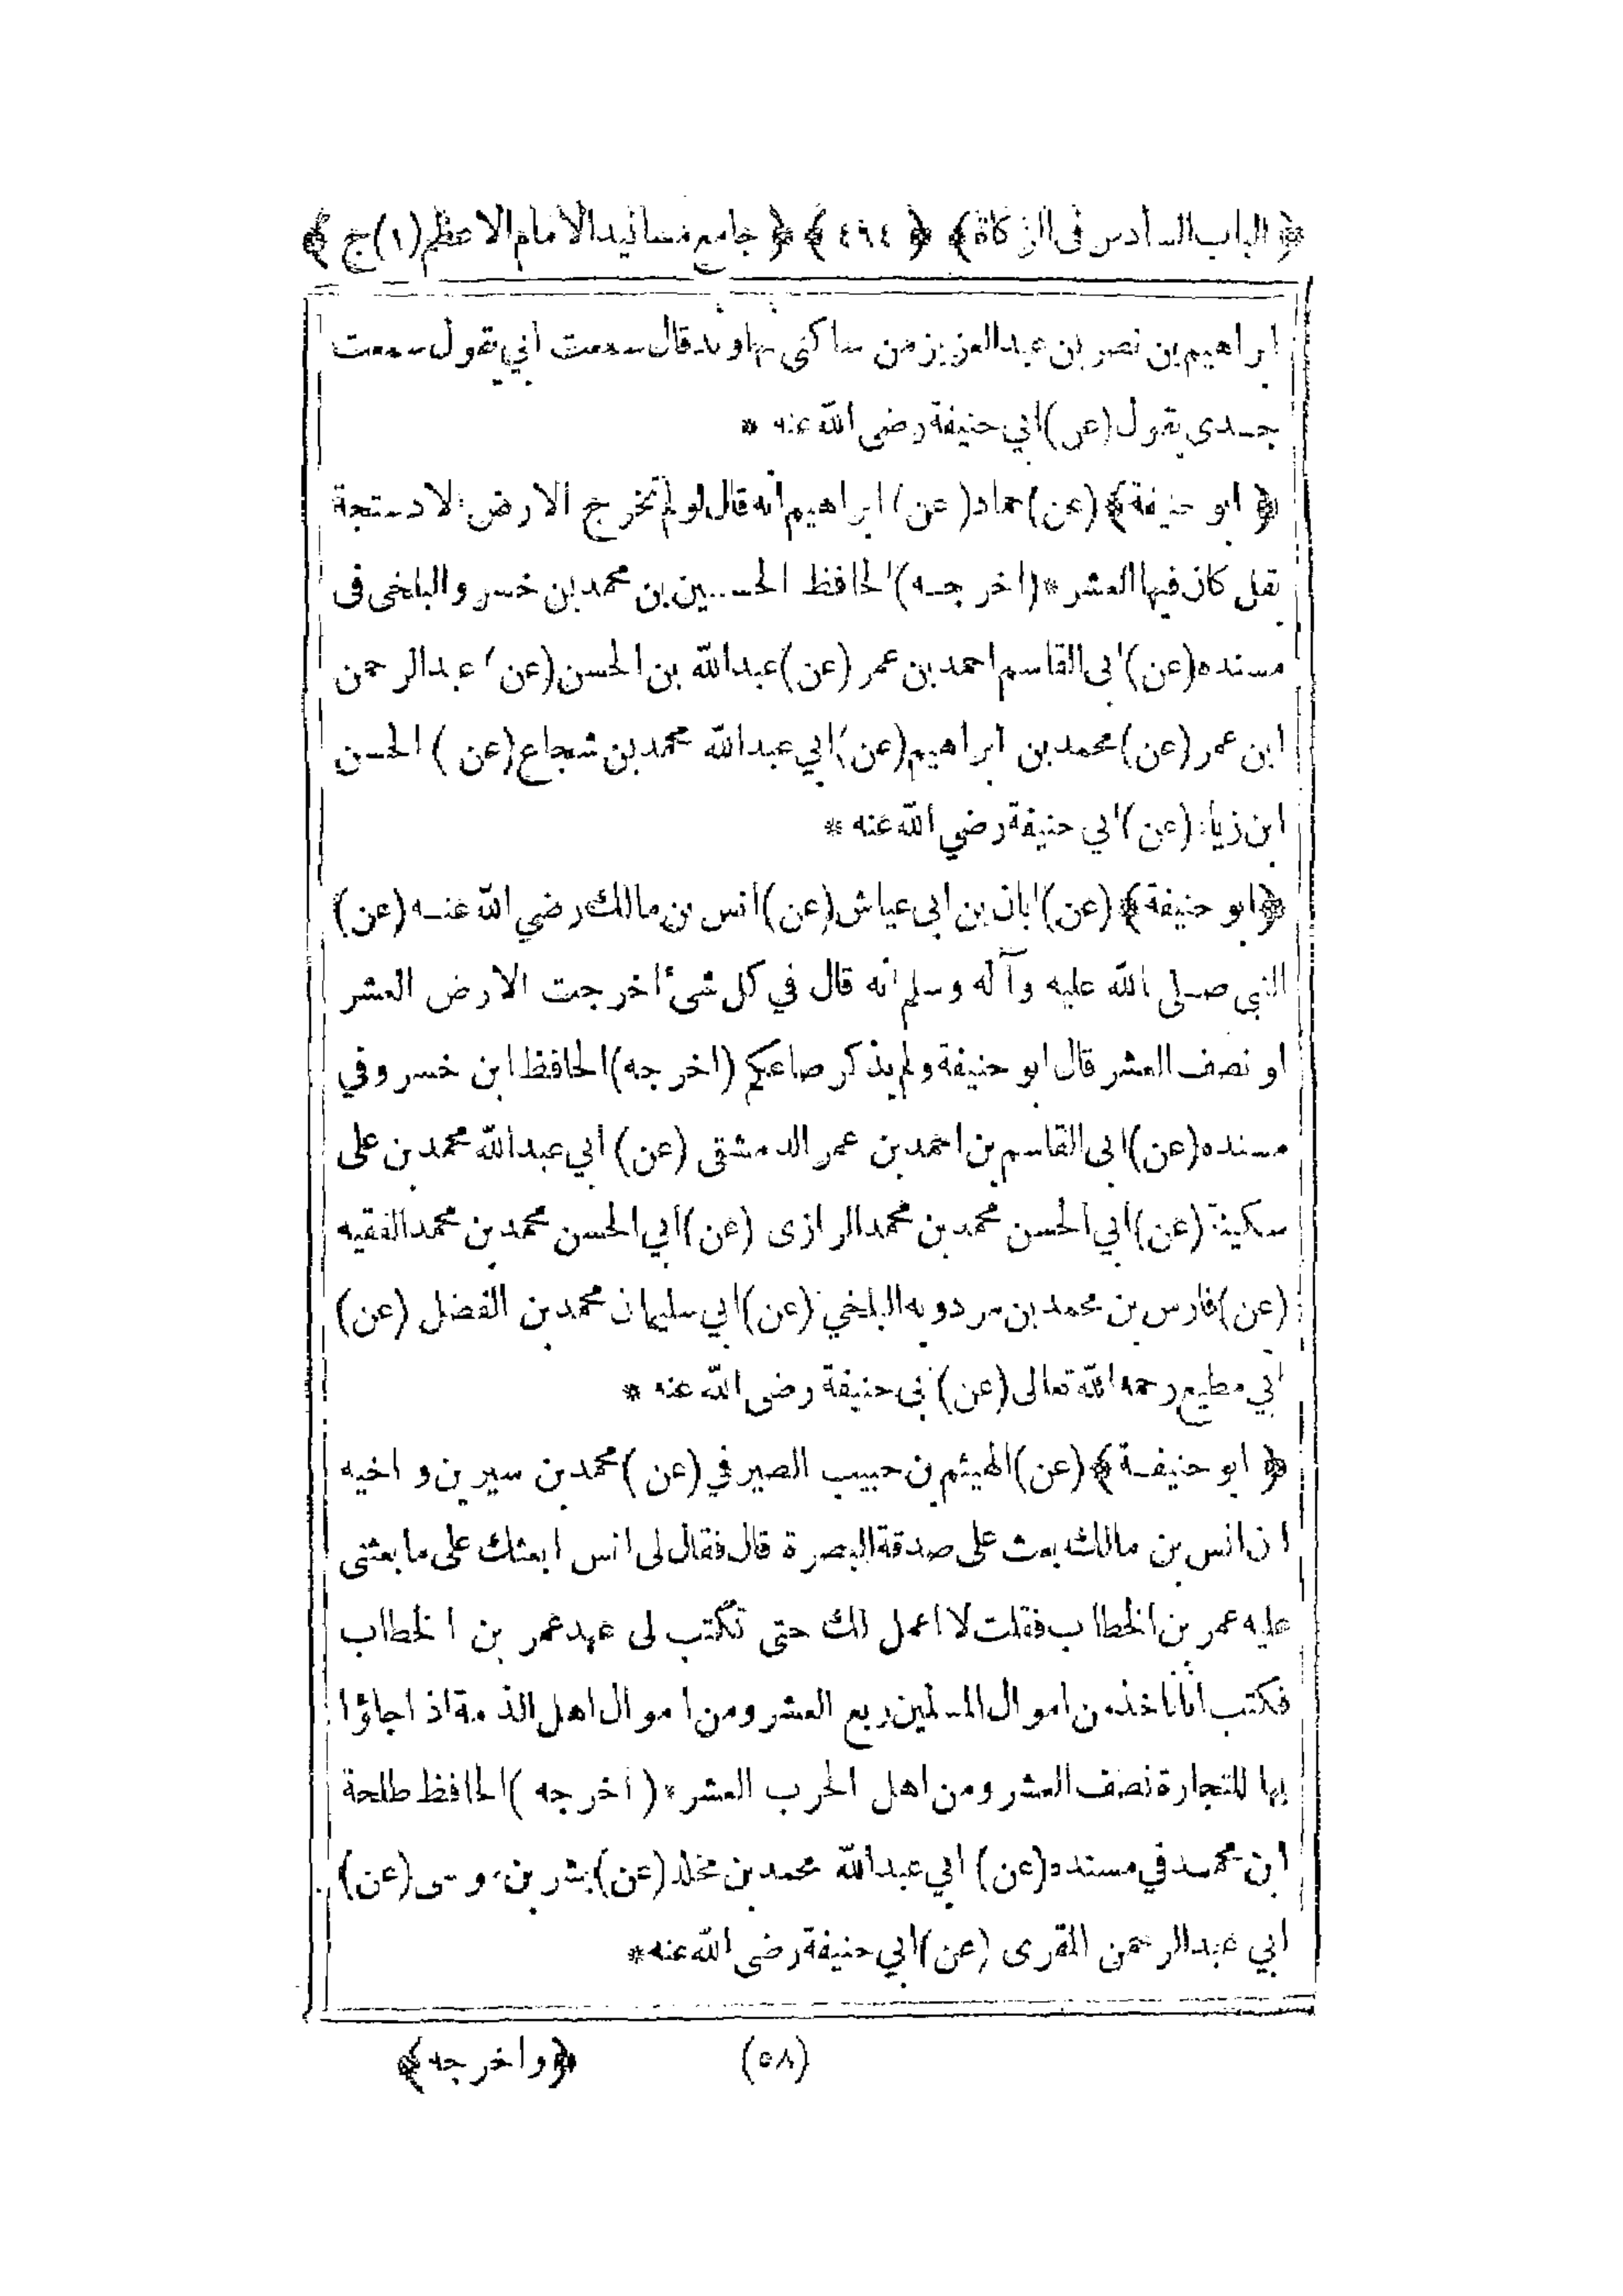 ﴿ الباب السادس في الزكاة ﴾ ﴿ ٤٩٤ ﴾ ﴿ جامع مسانيد الامام الاعظم (١) ج ﴾
ابراهيم بن نصر بن عبد العزيز من ساكنى نهاوند قال سمعت ابي يقول سمعت
جدى يقول (عن) ابي حنيفة رضى الله عنه *
﴿ ابو حنيفة ﴾ (عن) حماد (عن) ابراهيم انه قال لو لم تخرج الارض الا دستجة
بقل كان فيها العشر * (اخرجه) الحافظ الحسين بن محمد بن خسرو البلخى فى
مسنده (عن) ابى القاسم احمد بن عمر (عن) عبد الله بن الحسن (عن) عبد الرحمن
ابن عمر (عن) محمد بن ابراهيم (عن) ابي عبد الله محمد بن شجاع (عن) الحسن
ابن زياد (عن) ابي حنيفة رضي الله عنه *
﴿ ابو حنيفة ﴾ (عن) ابان بن ابى عياش (عن) انس بن مالك رضي الله عنه (عن)
النبى صلى الله عليه وآله وسلم انه قال في كل شىء اخرجت الارض العشر
او نصف العشر قال ابو حنيفة ولم يذكر صاعكم (اخرجه) الحافظ ابن خسرو في
مسنده (عن) ابى القاسم بن احمد بن عمر الدمشقى (عن) ابي عبد الله محمد بن على
سكينة (عن) ابي الحسن محمد بن محمد الرازى (عن) ابي الحسن محمد بن محمد الفقيه
(عن) فارس بن محمد بن مردويه البلخي (عن) ابي سليمان محمد بن الفضل (عن)
ابي مطيع رحمه الله تعالى (عن) ابى حنيفة رضى الله عنه *
﴿ ابو حنيفة ﴾ (عن) الهيثم بن حبيب الصيرفي (عن) محمد بن سيرين و اخيه
ان انس بن مالك بعث على صدقة البصرة قال فقال لى انس ابعثك على ما بعثنى
عليه عمر بن الخطاب فقلت لا اعمل لك حتى تكتب لى عهد عمر بن الخطاب
فكتب ان تاخذ من اموال المسلمين ربع العشر ومن اموال اهل الذمة اذا جاؤا
بها للتجارة نصف العشر ومن اهل الحرب العشر * (اخرجه) الحافظ طلحة
ابن محمد في مسنده (عن) ابي عبد الله محمد بن مخلد (عن) بشر بن موسى (عن)
ابي عبد الرحمن المقرى (عن) ابي حنيفة رضى الله عنه *
(٥٨) ﴿ واخرجه ﴾